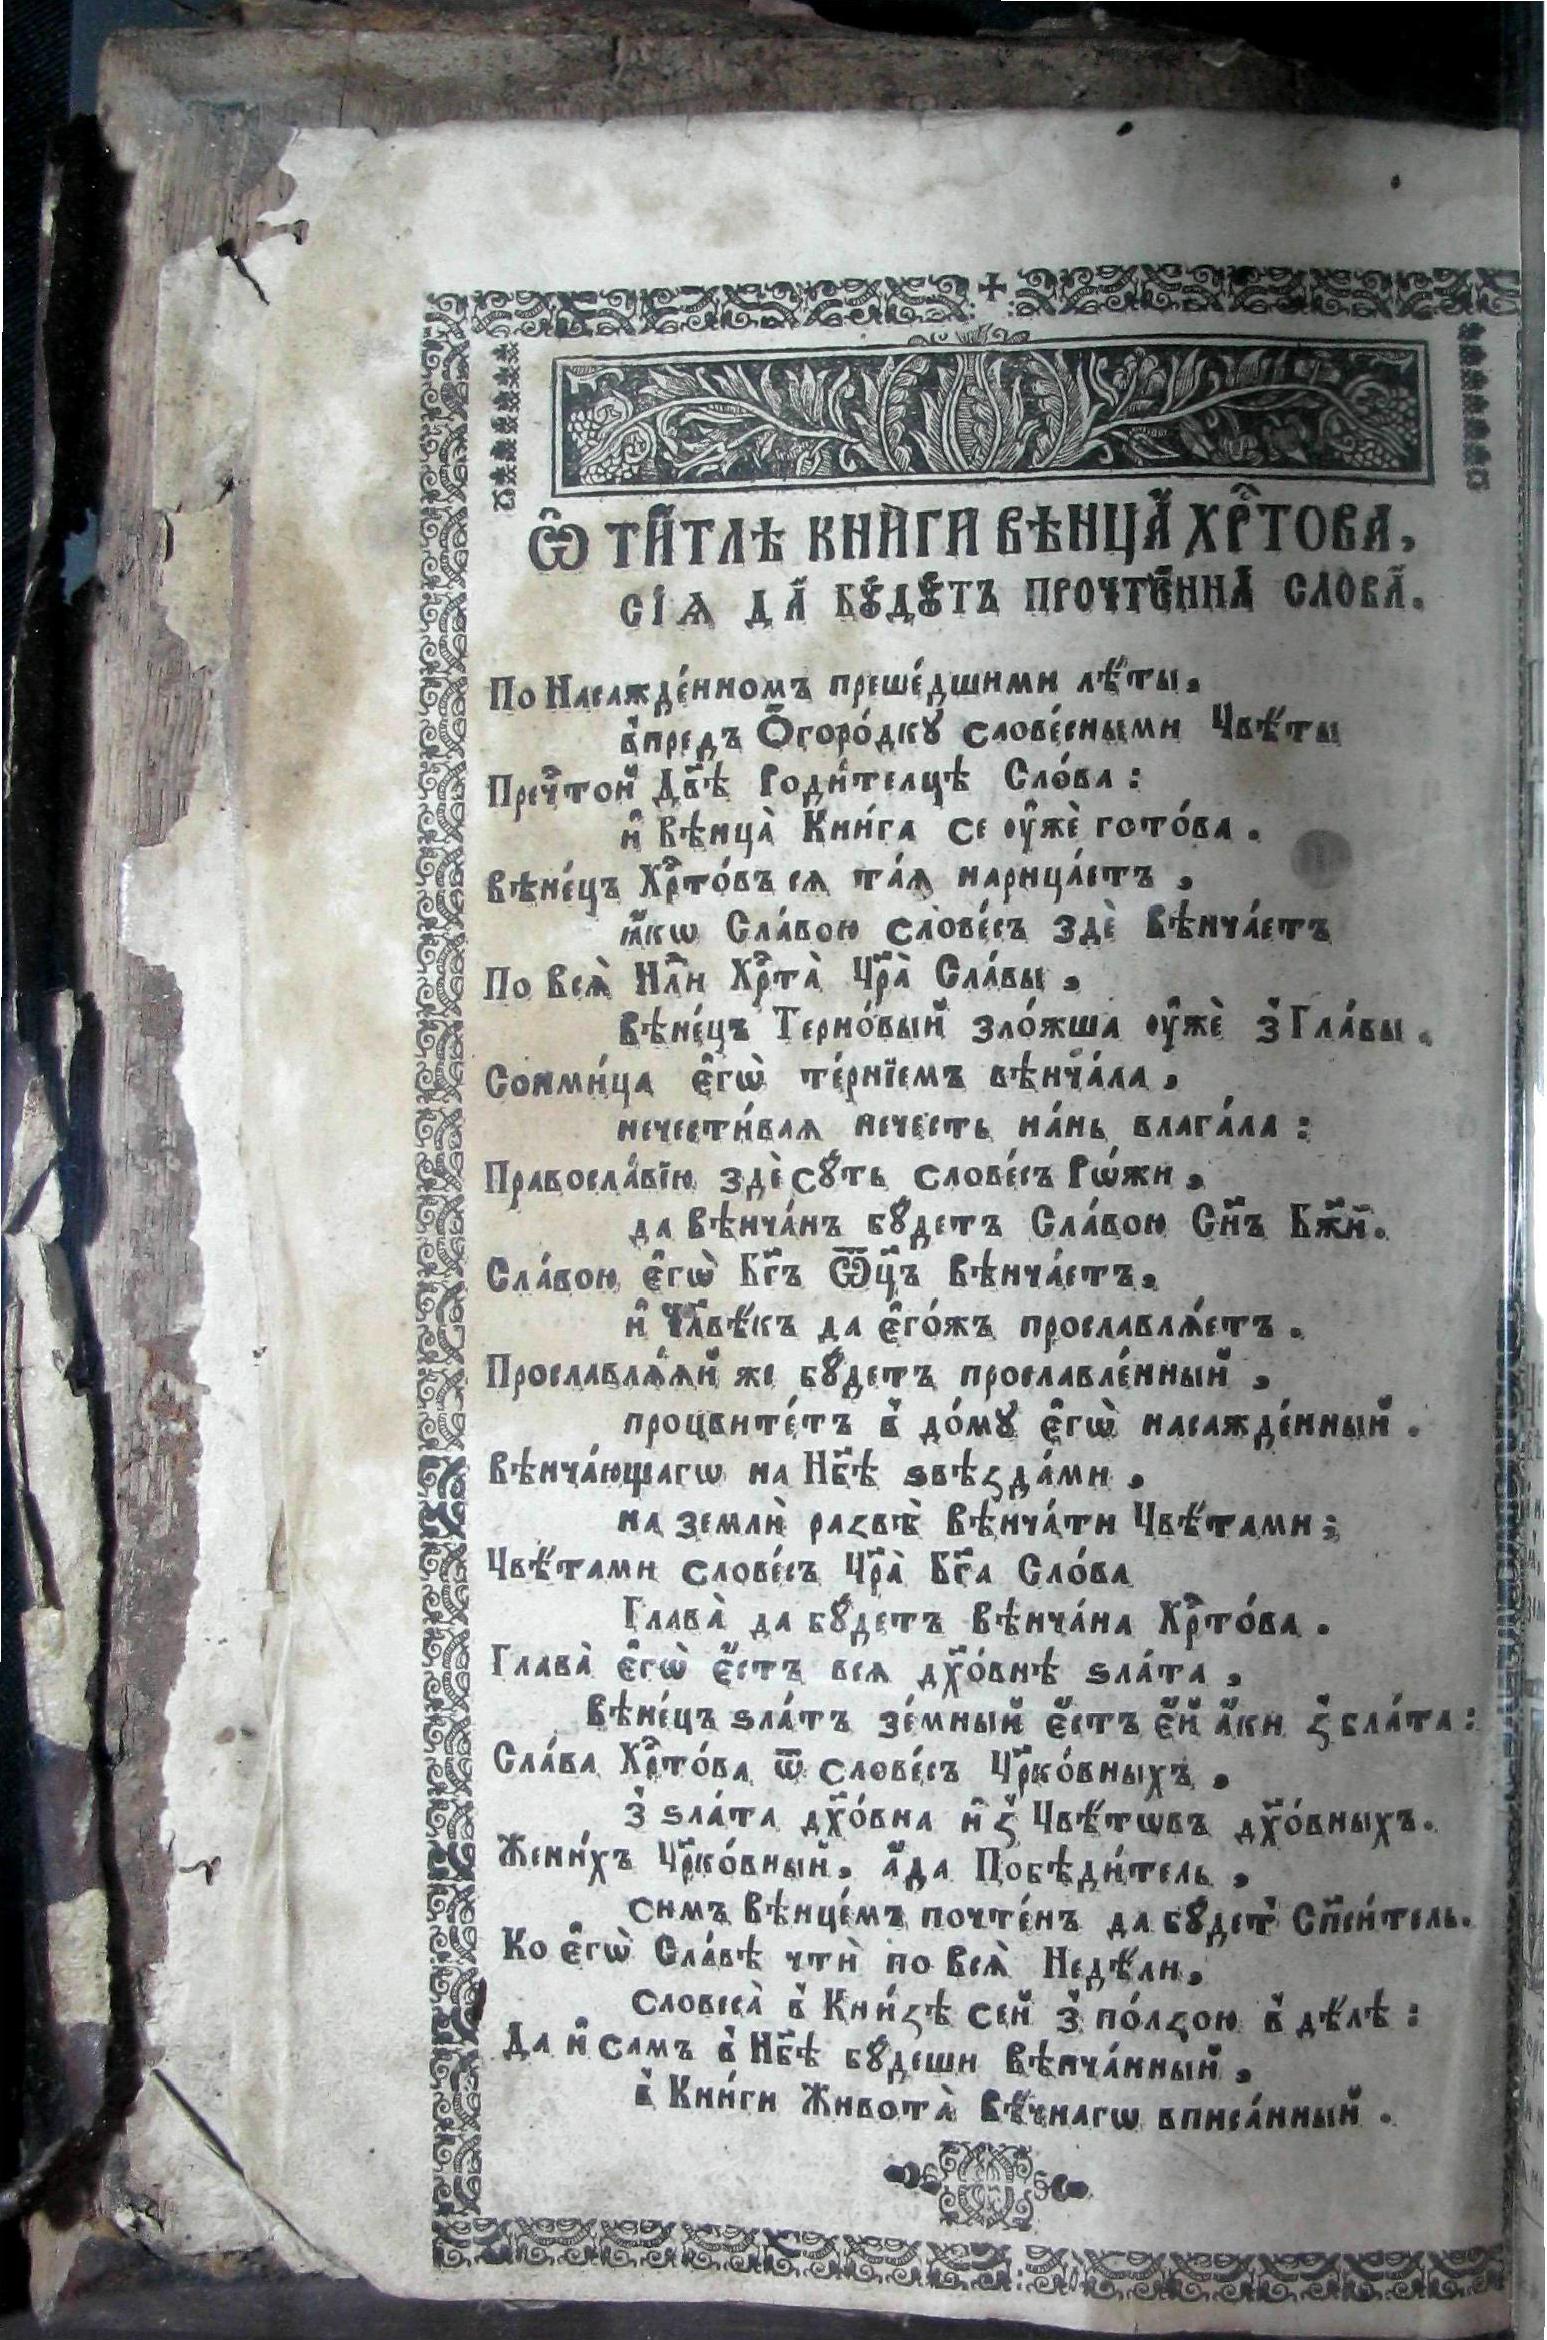 Ѽ ти́тлѣ кни́ги вѣнца̀ хрⷭ҇това,
сїѧ̀ да̀ бꙋ́дꙋтъ прочте́нна словà.
По Насажде́нномъ преше́дшими лѣ́ты,
в̾предъ Ѻ҆горо́дкꙋ слове́сными Цвѣ́ты
Пречⷭ҇той Дв҃ѣ Роди́телцѣ Сло́ва:
и҆ Вѣнца̀ Кни́га се оу҆жѐ гото́ва.
Вѣне́цъ Хрⷭ҇то́въ сѧ та́ѧ нарица́етъ,
ꙗ҆́кѡ Сла́вою слове́съ здѐ Вѣнча́етъ
По Всѧ̀ Нл҃и Хрⷭ҇та̀ Цр҃ѧ̀ Сла́вы,
вѣне́цъ Терно́вый зло́жша оу҆жѐ з̾ Гла́вы.
Сонми́ца є҆гѡ̀ те́рнїемъ вѣнча́ла,
нечести́ваѧ нече́сть на́нь влага́ла:
Правосла́вїю здѐ сꙋ́ть слове́съ Рѡ́жи,
да вѣнча́нъ бꙋ́детъ Сла́вою Сн҃ъ Бж҃їй.
Сла́вою є҆гѡ̀ Бг҃ъ Ѿц҃ъ Вѣнча́етъ,
и҆ Чл҃вѣ́къ да є҆го́жъ прославлѧ́етъ.
Прославлѧ́ѧй же бꙋ́детъ прославле́нный,
процвите́тъ в̾ до́мꙋ є҆гѡ̀ насажде́нный.
Вѣнча́ющагѡ на Нб҃ѣ ѕвѣꙁда́ми,
на землѝ раꙁвѣ̀ Вѣнча́ти Цвѣ́тами;
Цвѣ́тами слове́съ Цр҃ѧ̀ Бг҃а Сло́ва
Глава̀ да бꙋ́детъ Вѣнча́на Хрⷭ҇то́ва.
Глава̀ є҆гѡ̀ є҆́стъ всѧ дх҃о́внѣ ѕла́та,
Вѣне́цъ ѕла́тъ зе́мный є҆́стъ є҆́й а҆́ки ꙁ̾ бла́та:
Сла́ва Хрⷭ҇то́ва ѿ слове́съ Цр҃ко́вныхъ,
з̾ ѕла́та дх҃о́вна и҆ ꙁ̾ Цвѣ́тѡвъ дх҃о́вныхъ.
Жени́хъ Цр҃ко́вный, а҆́да Побѣди́тель,
симъ Вѣнце́мъ почте́нъ да бꙋ́детъ Сп҃си́тель.
Ко є҆гѡ̀ Сла́вѣ чтѝ по Всѧ̀ Недѣ́ли,
словеса̀ в̾ Кни́ꙁѣ сей з̾ по́лꙁою в̾ дѣ́лѣ:
Да и҆ самъ в̾ Нб҃ѣ бꙋ́деши Вѣнча́нный,
в̾ Кни́ги Живота̀ Вѣ́чнагѡ вписа́нный.